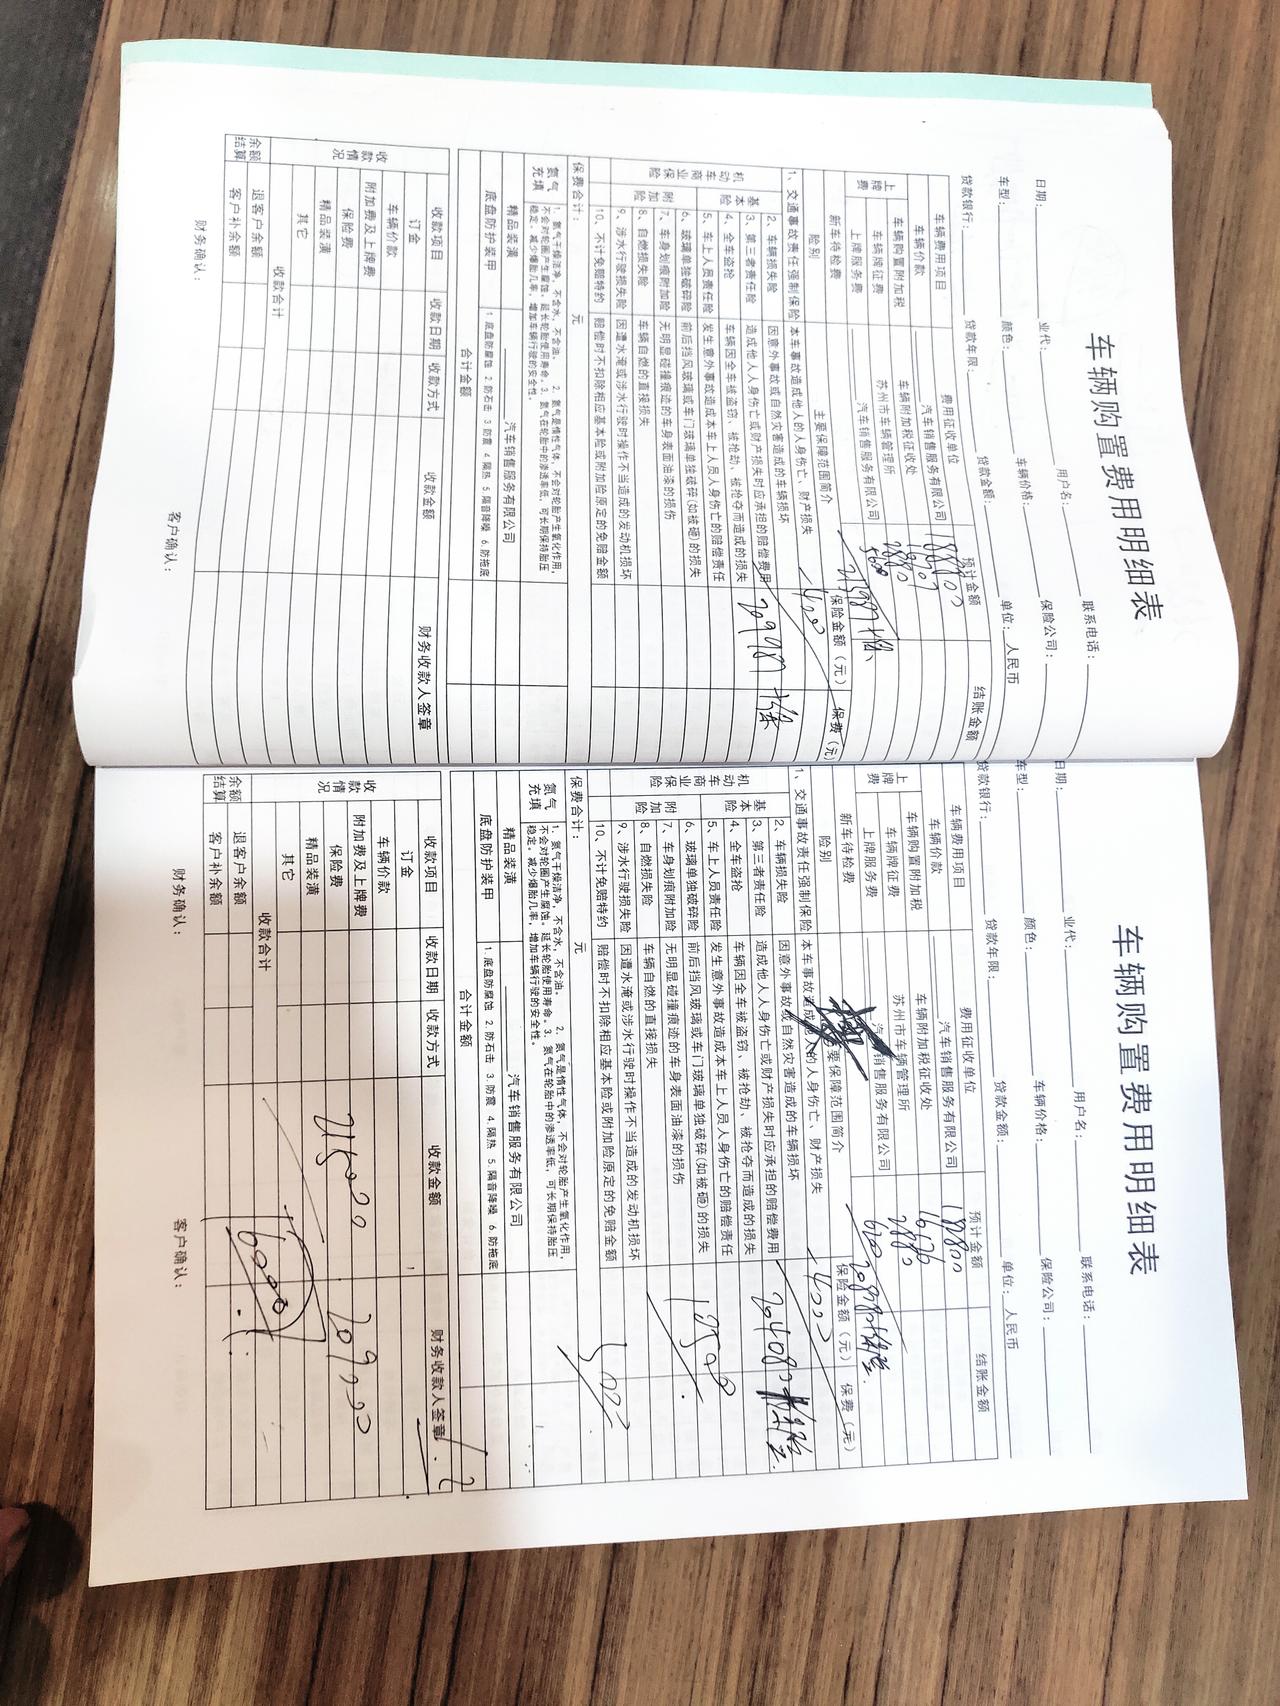 车辆购置费用明细表
日期： 业代： 用户名： 联系电话：
车型： 颜色： 车辆价格： 保险公司：
贷款银行： 贷款年限： 贷款金额： 单位：人民币
车辆费用项目 费用征收单位 预计金额 结账金额
车辆价款 汽车销售服务有限公司 188800
上牌费 车辆购置附加税 车辆附加税征收处
车辆牌征费 苏州市车辆管理所
上牌服务费 汽车销售服务有限公司
新车待检费
险别 主要保障范围简介 保险金额（元） 保费（元）
1、交通事故责任强制保险 本车事故造成他人的人身伤亡、财产损失
机动车商业保险 基本险 2、车辆损失险 因意外事故或自然灾害造成的车辆损坏
3、第三者责任险 造成他人人身伤亡或财产损失时应承担的赔偿费用
4、全车盗抢 车辆因全车被盗窃、被抢劫、被抢夺而造成的损失
5、车上人员责任险 发生意外事故造成本车上人员人身伤亡的赔偿责任
附加险 6、玻璃单独破碎险 前后挡风玻璃或车门玻璃单独破碎(如被砸)的损失
7、车身划痕附加险 无明显碰撞痕迹的车身表面油漆的损伤
8、自燃损失险 车辆自燃的直接损失
9、涉水行驶损失险 因遭水淹或涉水行驶时操作不当造成的发动机损坏
10、不计免赔特约 赔偿时不扣除相应基本险或附加险原定的免赔金额
保费合计： 元
氮气充填 1、氮气干燥洁净，不含水，不含油。 2、氮气是惰性气体，不会对轮胎产生氧化作用，
不会对轮圈产生腐蚀，延长轮胎使用寿命。3、氮气在轮胎中的渗透率低，可长期保持胎压
稳定，减少爆胎几率，增加车辆行驶的安全性。
精品装潢 汽车销售服务有限公司
底盘防护装甲 1.底盘防腐蚀 2.防石击 3.防震 4.隔热 5.隔音降噪 6.防拖底
合计金额
收款情况 收款项目 收款日期 收款方式 收款金额 财务收款人签章
订金
车辆价款
附加费及上牌费
保险费
精品装潢
其它
收款合计
余额结算 退客户余额
客户补余额
财务确认： 客户确认：
车辆购置费用明细表
日期： 业代： 用户名： 联系电话：
车型： 颜色： 车辆价格： 保险公司：
贷款银行： 贷款年限： 贷款金额： 单位：人民币
车辆费用项目 费用征收单位 预计金额 结账金额
车辆价款 汽车销售服务有限公司
上牌费 车辆购置附加税 车辆附加税征收处
车辆牌征费 苏州市车辆管理所
上牌服务费 汽车销售服务有限公司
新车待检费
险别 要保障范围简介 保险金额（元） 保费（元）
1、交通事故责任强制保险 本车事故造成他人的人身伤亡、财产损失
机动车商业保险 基本险 2、车辆损失险 因意外事故或自然灾害造成的车辆损坏
3、第三者责任险 造成他人人身伤亡或财产损失时应承担的赔偿费用
4、全车盗抢 车辆因全车被盗窃、被抢劫、被抢夺而造成的损失
5、车上人员责任险 发生意外事故造成本车上人员人身伤亡的赔偿责任
附加险 6、玻璃单独破碎险 前后挡风玻璃或车门玻璃单独破碎(如被砸)的损失
7、车身划痕附加险 无明显碰撞痕迹的车身表面油漆的损伤
8、自燃损失险 车辆自燃的直接损失
9、涉水行驶损失险 因遭水淹或涉水行驶时操作不当造成的发动机损坏
10、不计免赔特约 赔偿时不扣除相应基本险或附加险原定的免赔金额
保费合计： 元
氮气充填 1、氮气干燥洁净，不含水，不含油。 2、氮气是惰性气体，不会对轮胎产生氧化作用，
不会对轮圈产生腐蚀，延长轮胎使用寿命。3、氮气在轮胎中的渗透率低，可长期保持胎压
稳定，减少爆胎几率，增加车辆行驶的安全性。
精品装潢 汽车销售服务有限公司
底盘防护装甲 1.底盘防腐蚀 2.防石击 3.防震 4.隔热 5.隔音降噪 6.防拖底
合计金额
收款情况 收款项目 收款日期 收款方式 收款金额 财务收款人签章
订金
车辆价款
附加费及上牌费 209000
保险费 215000
精品装潢
其它
收款合计 6000
余额结算 退客户余额
客户补余额
财务确认： 客户确认：